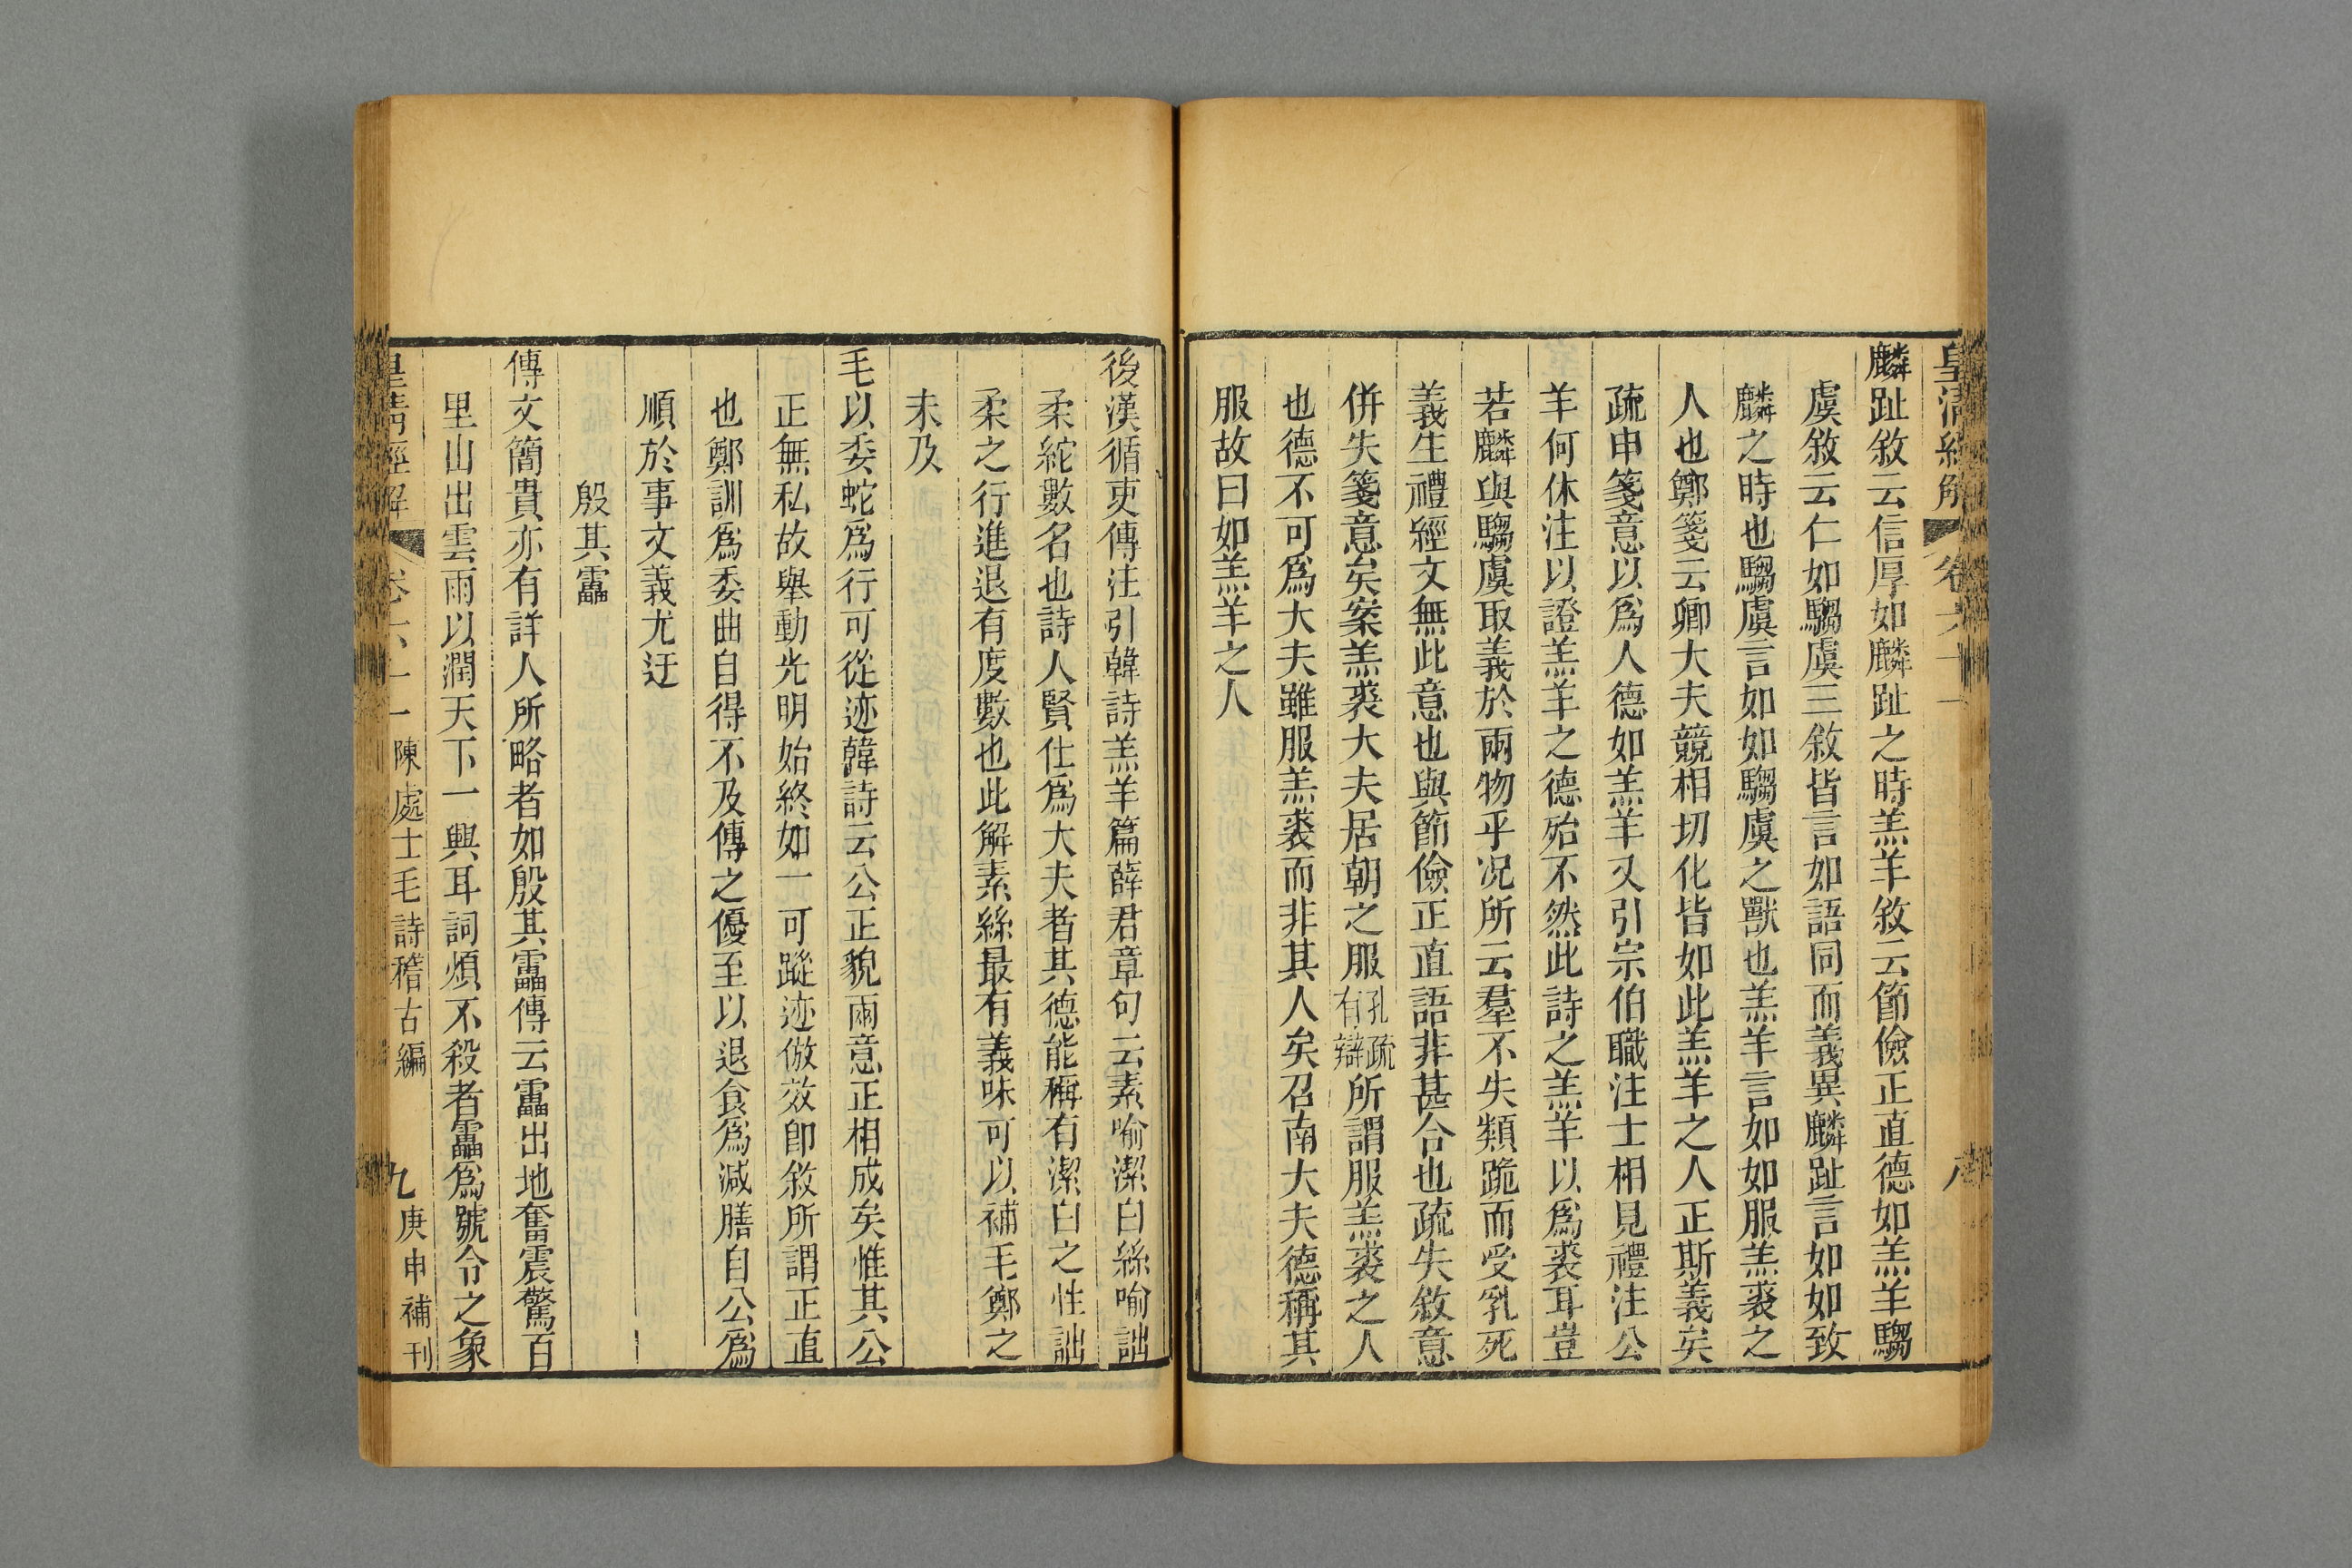 皇清經解 卷六十一 八
麟趾敘云信厚如麟趾之時羔羊敘云節儉正直德如羔羊騶
虞敘云仁如騶虞三敘皆言如語同而義異麟趾言如如致
麟之時也騶虞言如如騶虞之獸也羔羊言如如服羔裘之
人也鄭箋云卿大夫競相切化皆如此羔羊之人正斯義矣
疏申箋意以爲人德如羔羊又引宗伯職注士相見禮注公
羊何休注以證羔羊之德殆不然此詩之羔羊以爲裘耳豈
若麟與騶虞取義於兩物乎况所云羣不失類跪而受乳死
義生禮經文無此意也與節儉正直語非甚合也疏失敘意
併失箋意矣案羔裘大夫居朝之服孔疏有辯所謂服羔裘之人
也德不可爲大夫雖服羔裘而非其人矣召南大夫德稱其
服故曰如羔羊之人
後漢循吏傳注引韓詩羔羊篇薛君章句云素喻潔白絲喻詘
柔紽數名也詩人賢仕爲大夫者其德能稱有潔白之性詘
柔之行進退有度數也此解素絲最有義味可以補毛鄭之
未及
毛以委蛇爲行可從迹韓詩云公正貌兩意正相成矣惟其公
正無私故舉動光明始終如一可蹤迹倣效卽敘所謂正直
也鄭訓爲委曲自得不及傳之優至以退食爲減膳自公爲
順於事文義尤迂
殷其靁
傳文簡貴亦有詳人所略者如殷其靁傳云靁出地奮震驚百
里山出雲雨以潤天下一興耳詞煩不殺者靁爲號令之象
皇清經解 卷六十一 陳處士毛詩稽古編 九 庚申補刊